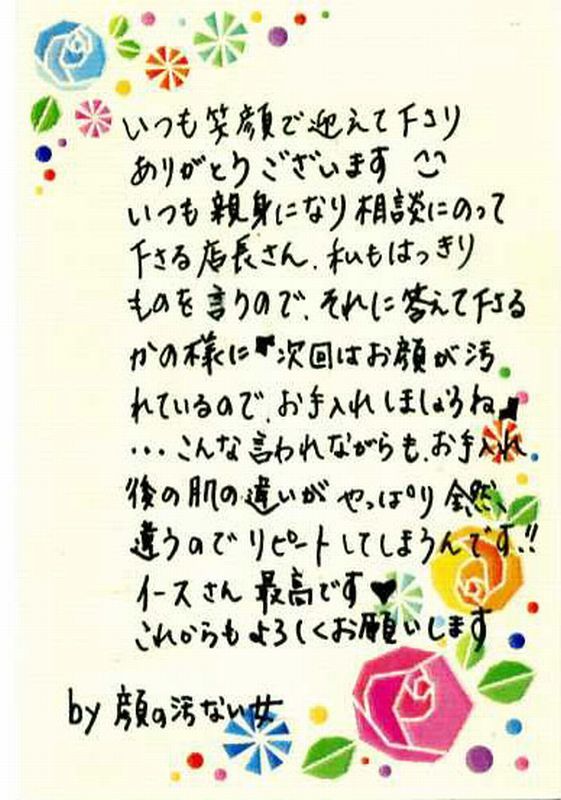 いつも笑顔で迎えて下さり
ありがとうございます
いつも親身になり相談にのって
下さる店長さん、私もはっきり
ものを言うので、それに答えて下さる
かの様に〝次回はお顔が汚
れているので、お手入れしましょうね〟
…こんな言われながらも、お手入れ
後の肌の違いがやっぱり全然、
違うのでリピートしてしまうんです!!
イースさん最高です♥
これからもよろしくお願いします
by 顔の汚ない女